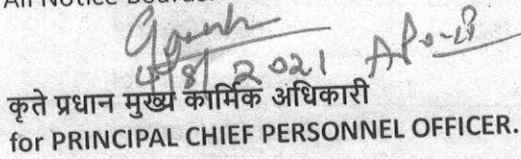 All Notice Boards.
8/2021 APO-II
कृते प्रधान मुख्य कार्मिक अधिकारी
for PRINCIPAL CHIEF PERSONNEL OFFICER.